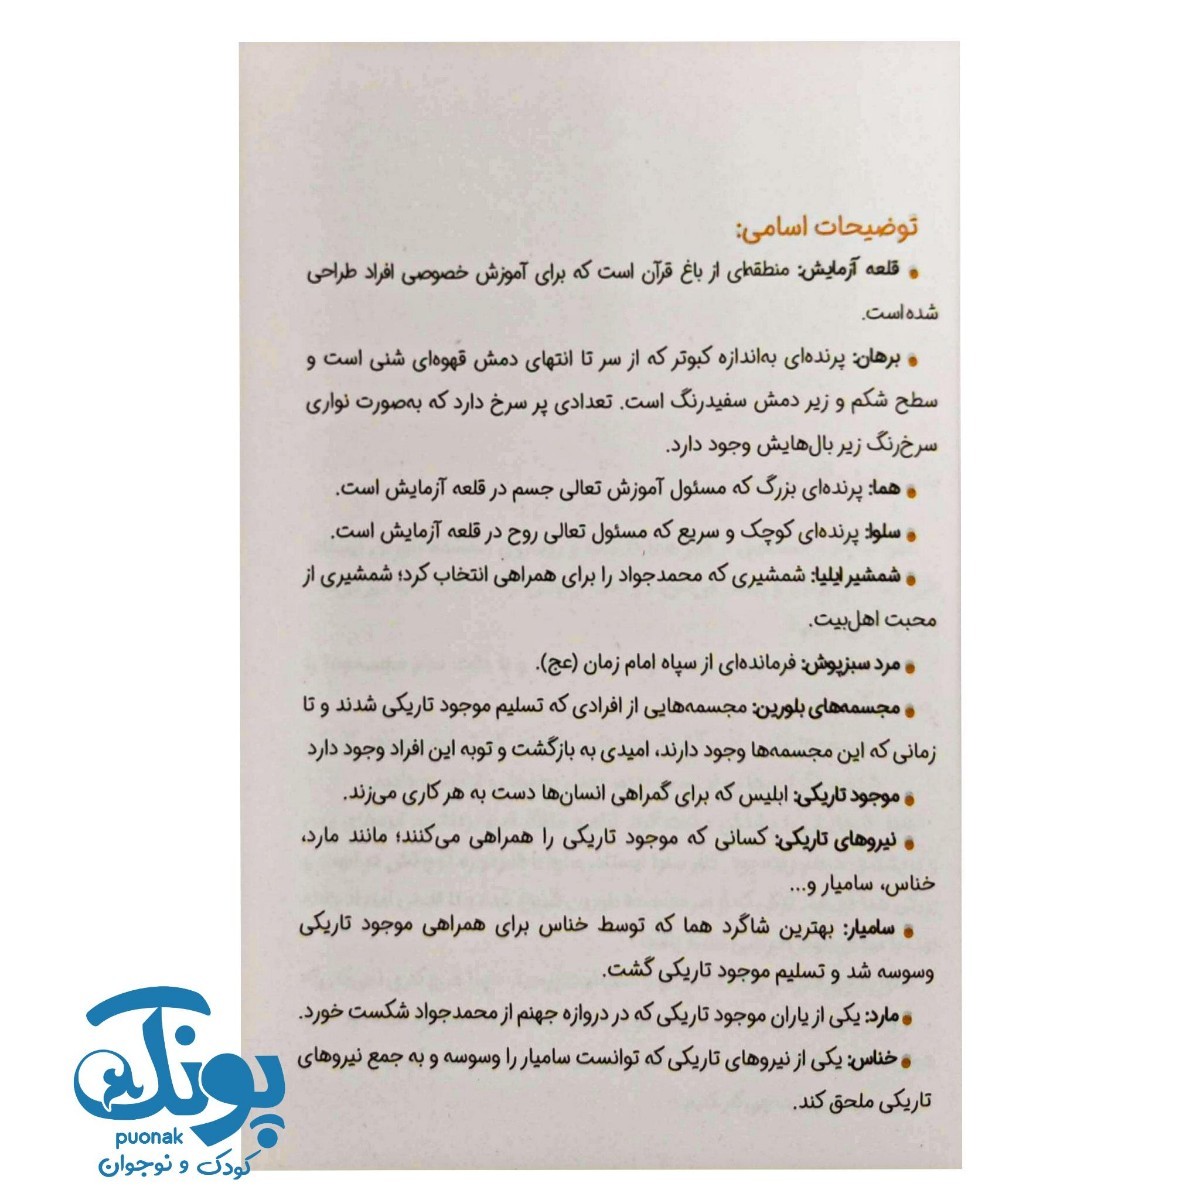 توضیحات اسامی:
• قلعه آزمایش: منطقه‌ای از باغ قرآن است که برای آموزش خصوصی افراد طراحی
شده است.
• برهان: پرنده‌ای به‌اندازه کبوتر که از سر تا انتهای دمش قهوه‌ای شنی است و
سطح شکم و زیر دمش سفیدرنگ است. تعدادی پر سرخ دارد که به‌صورت نواری
سرخ‌رنگ زیر بال‌هایش وجود دارد.
• هما: پرنده‌ای بزرگ که مسئول آموزش تعالی جسم در قلعه آزمایش است.
• سلوا: پرنده‌ای کوچک و سریع که مسئول تعالی روح در قلعه آزمایش است.
• شمشیر ایلیا: شمشیری که محمدجواد را برای همراهی انتخاب کرد؛ شمشیری از
محبت اهل‌بیت.
• مرد سبزپوش: فرمانده‌ای از سپاه امام زمان (عج).
• مجسمه‌های بلورین: مجسمه‌هایی از افرادی که تسلیم موجود تاریکی شدند و تا
زمانی که این مجسمه‌ها وجود دارند، امیدی به بازگشت و توبه این افراد وجود دارد
• موجود تاریکی: ابلیس که برای گمراهی انسان‌ها دست به هر کاری می‌زند.
• نیروهای تاریکی: کسانی که موجود تاریکی را همراهی می‌کنند؛ مانند مارد،
خناس، سامیار و...
• سامیار: بهترین شاگرد هما که توسط خناس برای همراهی موجود تاریکی
وسوسه شد و تسلیم موجود تاریکی گشت.
• مارد: یکی از یاران موجود تاریکی که در دروازه جهنم از محمدجواد شکست خورد.
• خناس: یکی از نیروهای تاریکی که توانست سامیار را وسوسه و به جمع نیروهای
تاریکی ملحق کند.
پونک
puonak
کودک و نوجوان